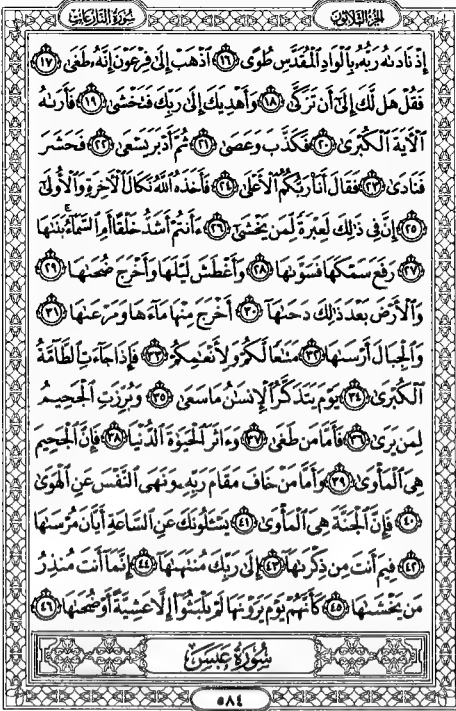 سُورَةُ النَّازِعَاتِ
الجزء الثلاثون
إِذْ نَادَىٰهُ رَبُّهُۥ بِٱلْوَادِ ٱلْمُقَدَّسِ طُوًى ١٦ ٱذْهَبْ إِلَىٰ فِرْعَوْنَ إِنَّهُۥ طَغَىٰ ١٧
فَقُلْ هَل لَّكَ إِلَىٰٓ أَن تَزَكَّىٰ ١٨ وَأَهْدِيَكَ إِلَىٰ رَبِّكَ فَتَخْشَىٰ ١٩ فَأَرَىٰهُ
ٱلْءَايَةَ ٱلْكُبْرَىٰ ٢٠ فَكَذَّبَ وَعَصَىٰ ٢١ ثُمَّ أَدْبَرَ يَسْعَىٰ ٢٢ فَحَشَرَ
فَنَادَىٰ ٢٣ فَقَالَ أَنَا۠ رَبُّكُمُ ٱلْأَعْلَىٰ ٢٤ فَأَخَذَهُ ٱللَّهُ نَكَالَ ٱلْءَاخِرَةِ وَٱلْأُولَىٰٓ
٢٥ إِنَّ فِى ذَٰلِكَ لَعِبْرَةً لِّمَن يَخْشَىٰٓ ٢٦ ءَأَنتُمْ أَشَدُّ خَلْقًا أَمِ ٱلسَّمَآءُ ۚ بَنَىٰهَا
٢٧ رَفَعَ سَمْكَهَا فَسَوَّىٰهَا ٢٨ وَأَغْطَشَ لَيْلَهَا وَأَخْرَجَ ضُحَىٰهَا ٢٩
وَٱلْأَرْضَ بَعْدَ ذَٰلِكَ دَحَىٰهَآ ٣٠ أَخْرَجَ مِنْهَا مَآءَهَا وَمَرْعَىٰهَا ٣١
وَٱلْجِبَالَ أَرْسَىٰهَا ٣٢ مَتَٰعًا لَّكُمْ وَلِأَنْعَٰمِكُمْ ٣٣ فَإِذَا جَآءَتِ ٱلطَّآمَّةُ
ٱلْكُبْرَىٰ ٣٤ يَوْمَ يَتَذَكَّرُ ٱلْإِنسَٰنُ مَا سَعَىٰ ٣٥ وَبُرِّزَتِ ٱلْجَحِيمُ
لِمَن يَرَىٰ ٣٦ فَأَمَّا مَن طَغَىٰ ٣٧ وَءَاثَرَ ٱلْحَيَوٰةَ ٱلدُّنْيَا ٣٨ فَإِنَّ ٱلْجَحِيمَ
هِىَ ٱلْمَأْوَىٰ ٣٩ وَأَمَّا مَنْ خَافَ مَقَامَ رَبِّهِۦ وَنَهَى ٱلنَّفْسَ عَنِ ٱلْهَوَىٰ
٤٠ فَإِنَّ ٱلْجَنَّةَ هِىَ ٱلْمَأْوَىٰ ٤١ يَسْـَٔلُونَكَ عَنِ ٱلسَّاعَةِ أَيَّانَ مُرْسَىٰهَا
٤٢ فِيمَ أَنتَ مِن ذِكْرَىٰهَآ ٤٣ إِلَىٰ رَبِّكَ مُنتَهَىٰهَآ ٤٤ إِنَّمَآ أَنتَ مُنذِرُ
مَن يَخْشَىٰهَا ٤٥ كَأَنَّهُمْ يَوْمَ يَرَوْنَهَا لَمْ يَلْبَثُوٓا۟ إِلَّا عَشِيَّةً أَوْ ضُحَىٰهَا ٤٦
سُورَةُ عَبَسَ
٥٨٤